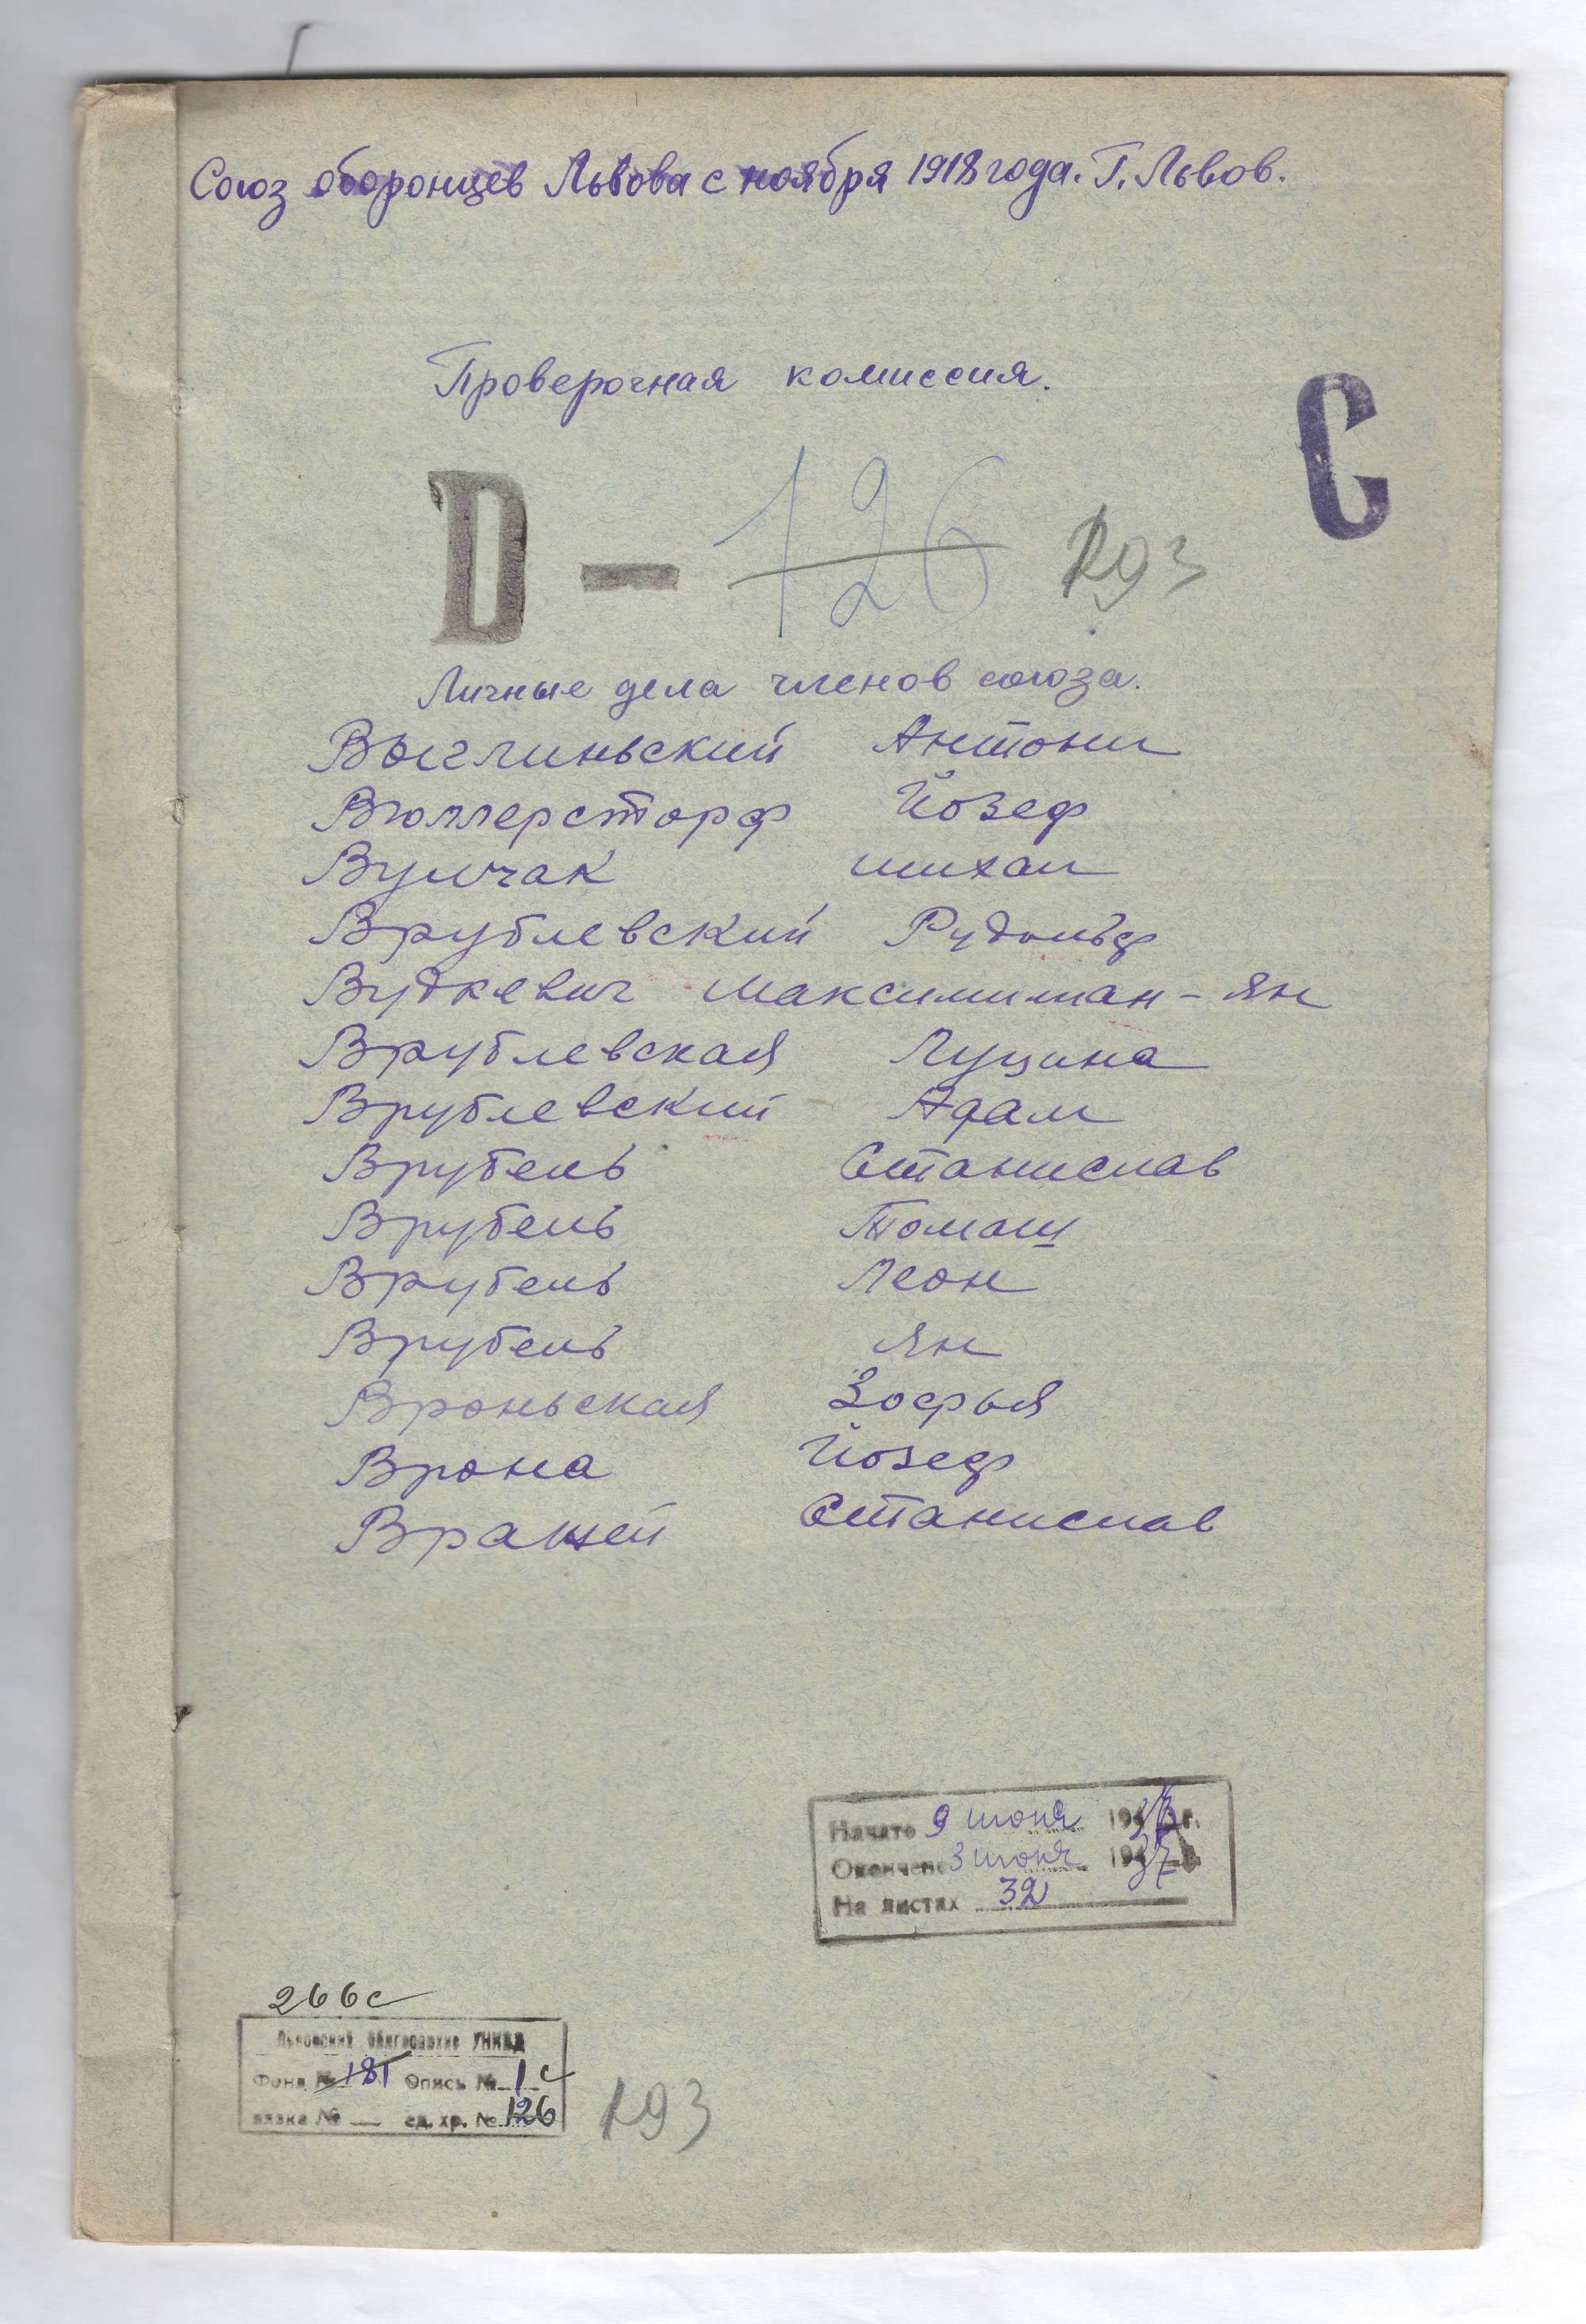 Союз оборонцев Львова с ноября 1918 года. Г. Львов.
Проверочная комиссия.
С
D - 126 193
Личные дела членов союза.
Выглиньский Антони
Вюллерсторф Йозеф
Вуйчак Михал
Врублевский Рудольф
Вудкевич Максимилиан-Ян
Врублевская Луцина
Врублевский Адам
Врубель Станислав
Врубель Томаш
Врубель Леон
Врубель Ян
Вроньская Зофья
Врона Йозеф
Станислав
Начато 9 июня 19
Окончено 3 июня 1937
На листах 32
266с
Львовский Облгосархив УНКВД
Фонд № 181 Опись № 1 с
вязка № — ед. хр. № 126
193